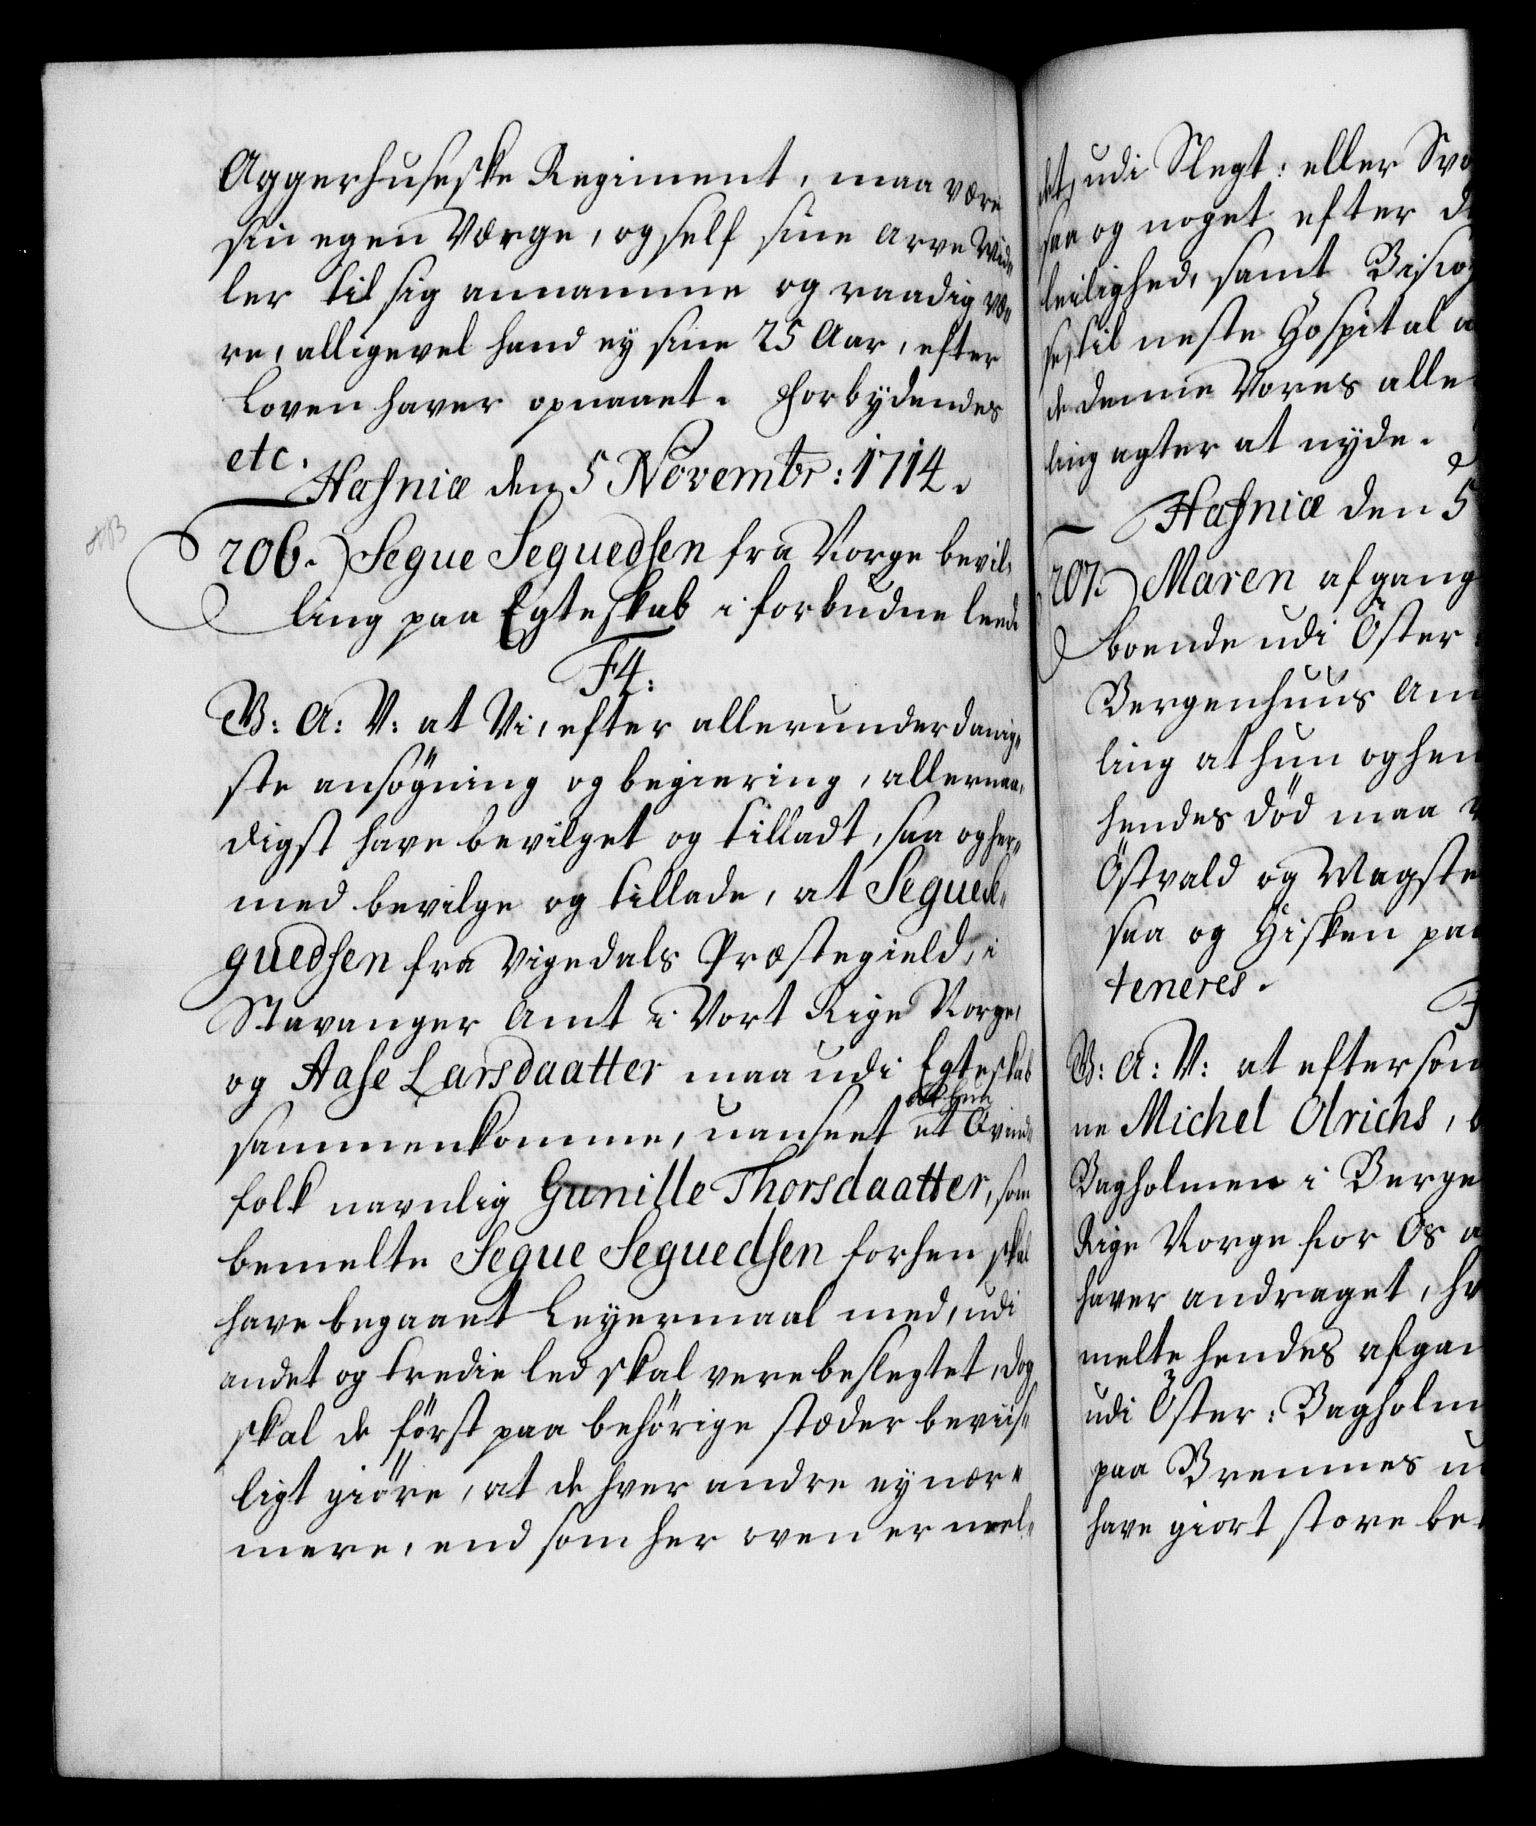 Aggerhuseske Regiment, maa være
sin egen Værge, og self sine Arve Mid¬
ler til sig annamme og raadig væ¬
re, alligevel hand ey sine 25 Aar, efter
Loven haver opnaaet. Forbydendes
etc.
Hafniæ den 5 Novembr: 1714.
206.) Segue Seguedsen fra Norge bevil¬
ling paa Egteskab i forbudne leede
F4:
V: A: V: at Vi, efter allerunderdanig¬
ste ansøgning og begiering, allernaa¬
digst have bevilget og tilladt, saa og her¬
med bevilge og tillade, at Segue Se¬
guedsen fra Vigedals Præstegield, i
Stavanger Amt i Vort Rige Norge,
og Aase Larsdaatter maa udi Egteskab
sammenkomme, uanseet et Qvind¬
folk navnlig Gunille Thorsdaatter, som
bemelte Segue Seguedsen forhen skal
have begaaet Leyermaal med, udi
andet og tredie led skal være beslegtet, dog
skal de først paa behørige stæder beviis¬
ligt giøre, at de hver andre ey nær¬
mere, end som her oven er meel¬
det, udi Slegt: eller Svo
saa og noget efter d
leilighed, samt Biscop
ses til neste Hospital a
de denne Vores aller
ling agter at nyde.
Hafniæ den 5
207.) Maren afgang
boende udi Öster
Bergenhuus Am
ling at hun og hen
hendes død maa
Östvald og Magste
saa og Fisken paa
teneres.
F
V: A: V: at eftersom
ne Michel Olrichs, b
Bagholmen i Berge
Rige Norge for Os a
haver andraget, hv
melte hendes afgan
udi Öster: Bagholm
paa Bremnes u
have giort store be